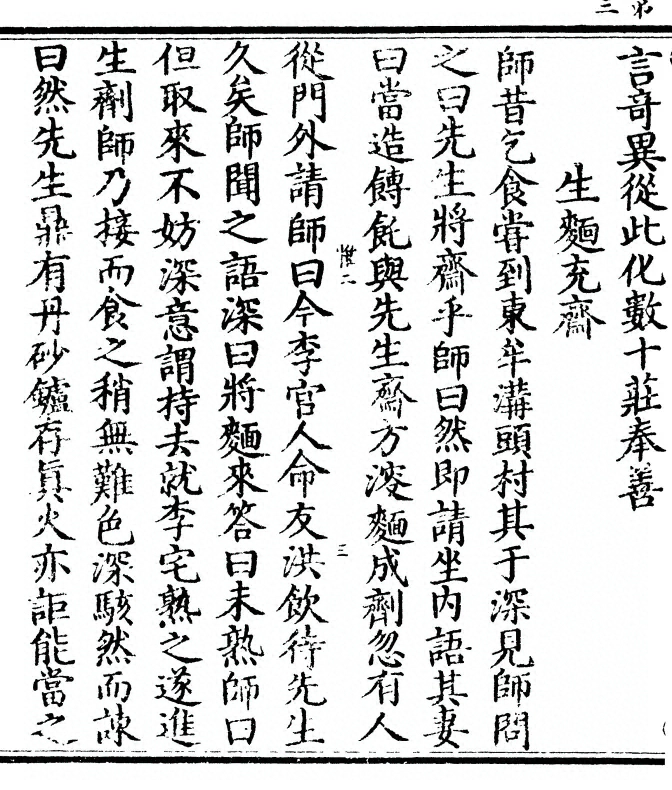 弟三
言奇異從此化數十莊奉善
生麵充齋
師昔乞食嘗到東牟溝頭村其于深見師問
之曰先生將齋乎師曰然即請坐內語其妻
曰當造餺飥與先生齋方溲麵成劑忽有人
從門外請師曰今李官人命友洪飲待先生
惟二
三
久矣師聞之語深曰將麵來答曰未熟師曰
但取來不妨深意謂持去就李宅熟之遂進
生劑師乃接而食之稍無難色深駭然而諫
曰然先生鼎有丹砂鑪存眞火亦詎能當之